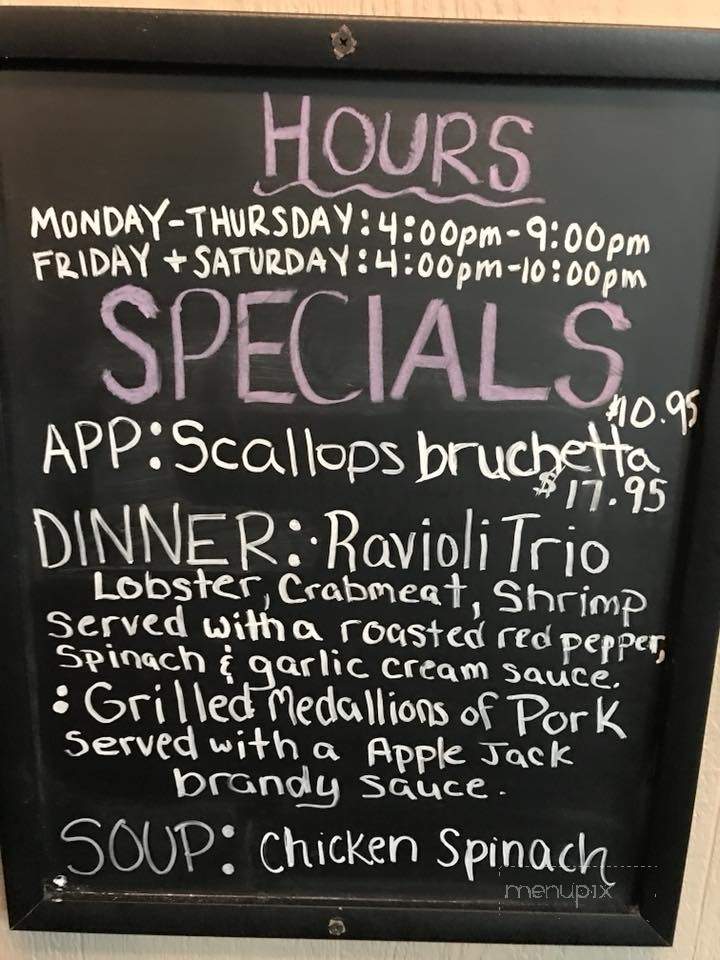 HOURS
MONDAY-THURSDAY: 4:00pm-9:00pm
FRIDAY + SATURDAY: 4:00pm-10:00pm
SPECIALS
$10.95
APP: Scallops bruchetta
$17.95
DINNER: Ravioli Trio
Lobster, Crabmeat, Shrimp
Served with a roasted red pepper,
Spinach & garlic cream sauce.
: Grilled Medallions of Pork
Served with a Apple Jack
brandy sauce.
SOUP: Chicken Spinach
menupix